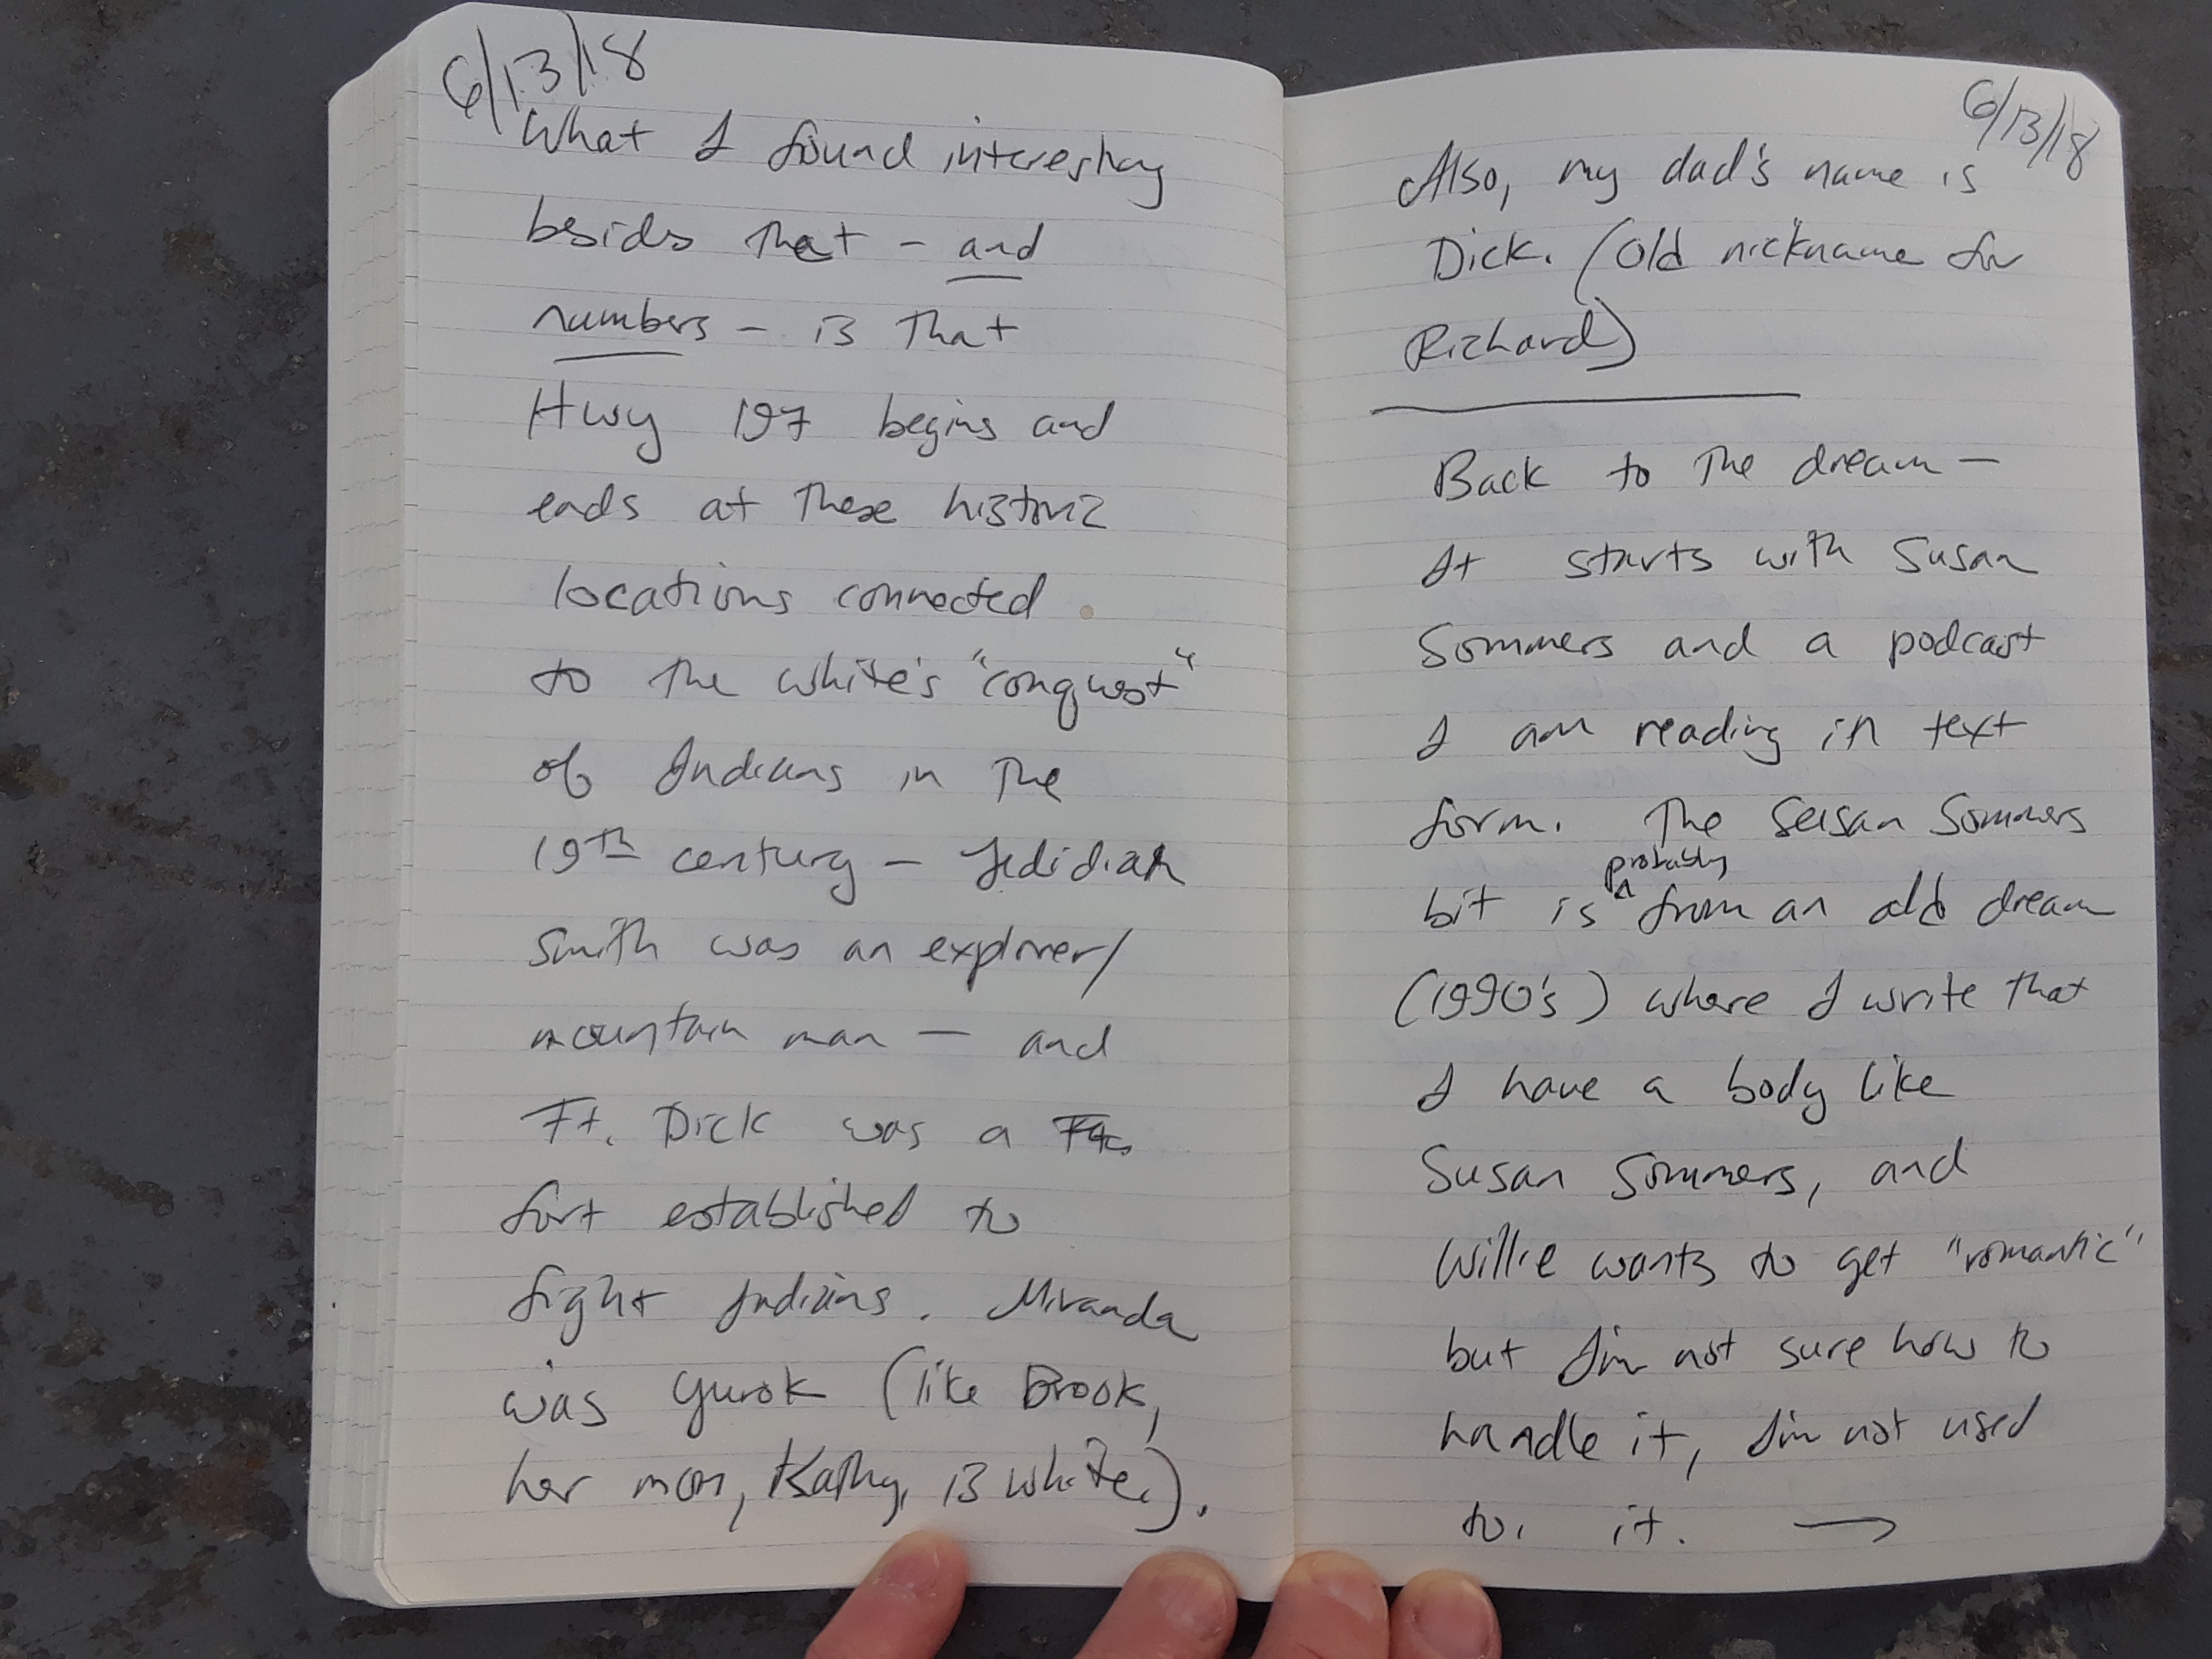 6/13/18
What I found interesting
besides that - and
numbers - is that
Hwy 197 begins and
ends at these historic
locations connected
to the white's "conquest"
of Indians in the
19th century - Jedidiah
Smith was an explorer/
mountain man - and
Ft. Dick was a
fort established to
fight Indians. Miranda
was Yurok (like Brook,
her mom, Kathy, is white.).
6/13/18
Also, my dad's name is
Dick. (Old nickname for
Richard)
Back to the dream -
It starts with Susan
Sommers and a podcast
I am reading in text
form. The Susan Sommers
bit is probably from an old dream
(1990's) where I write that
I have a body like
Susan Sommers, and
Willie wants to get "romantic"
but I'm not sure how to
handle it, I'm not used
to. it. →